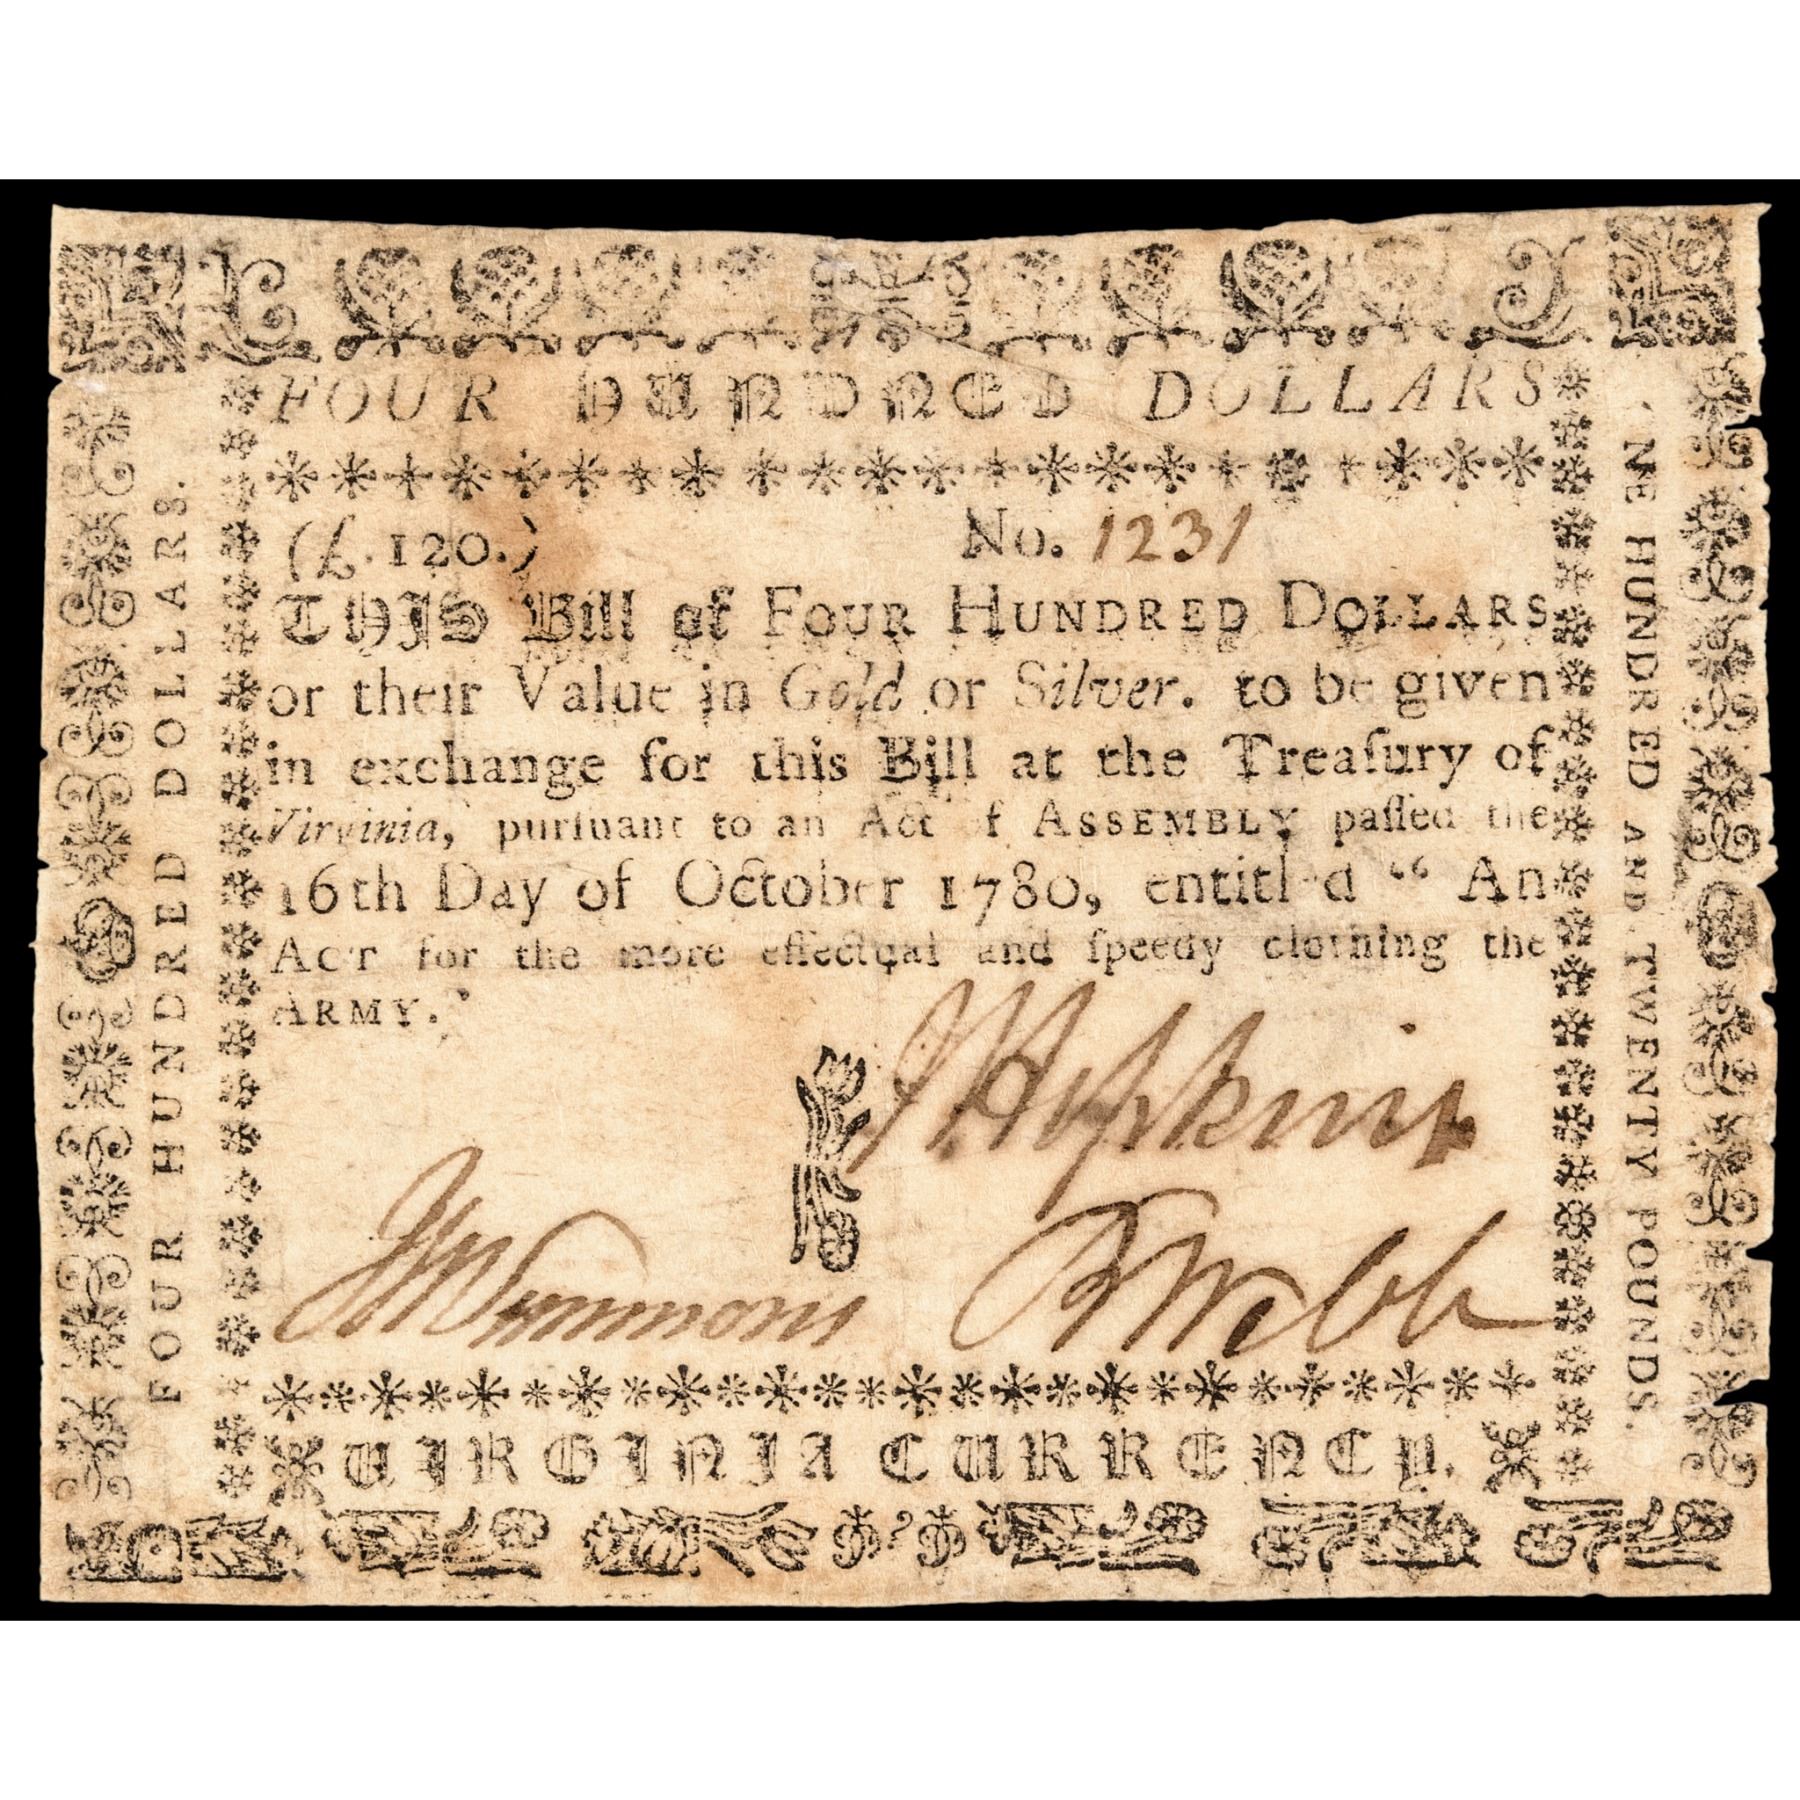 FOUR HUNDRED DOLLARS
(£.120.) No. 1231
THIS Bill of FOUR HUNDRED DOLLARS
or their Value in Gold or Silver. to be given
in exchange for this Bill at the Treaſury of
Virginia, purſuant to an Act of ASSEMBLY paſſed the
16th Day of October 1780, entitled “ An
ACT for the more effectual and ſpeedy clothing the
ARMY.”
J Hopkins
JM Simmons
B Webb
VIRGINIA CURRENCY.
FOUR HUNDRED DOLLARS.
NE HUNDRED AND TWENTY POUNDS.